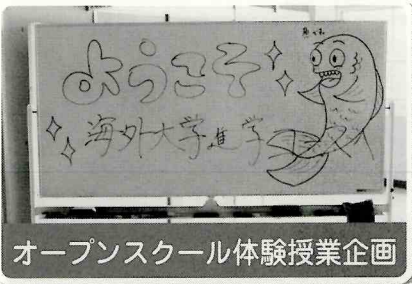 ようこそ
海外大学進学
コースへ
オープンスクール体験授業企画